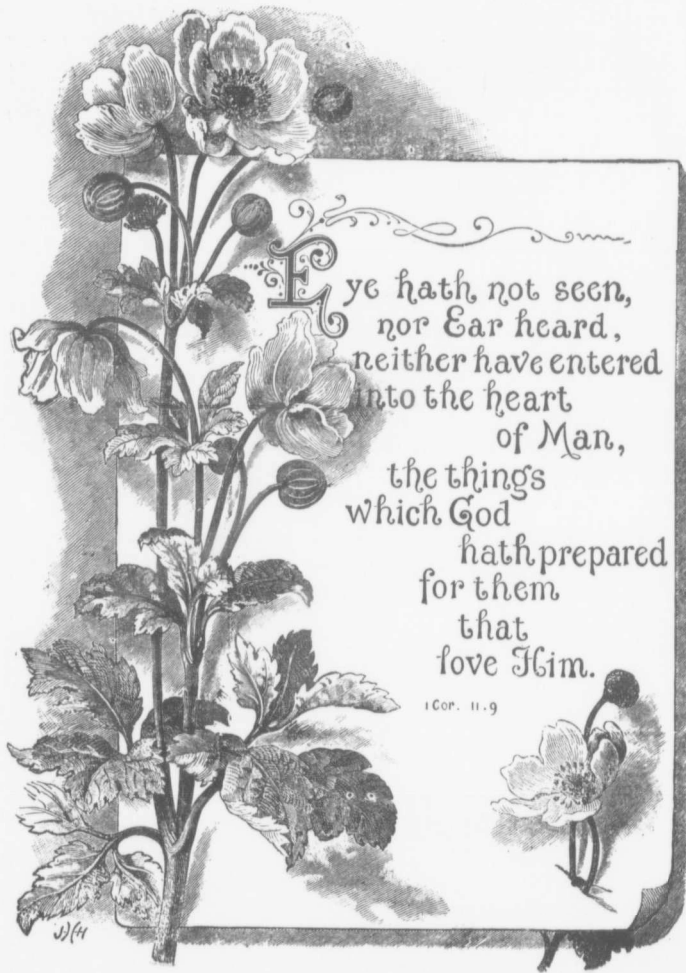 Eye hath not seen,
nor Ear heard,
neither have entered
into the heart
of Man,
the things
which God
hath prepared
for them
that
love Him.
1 Cor. 11.9